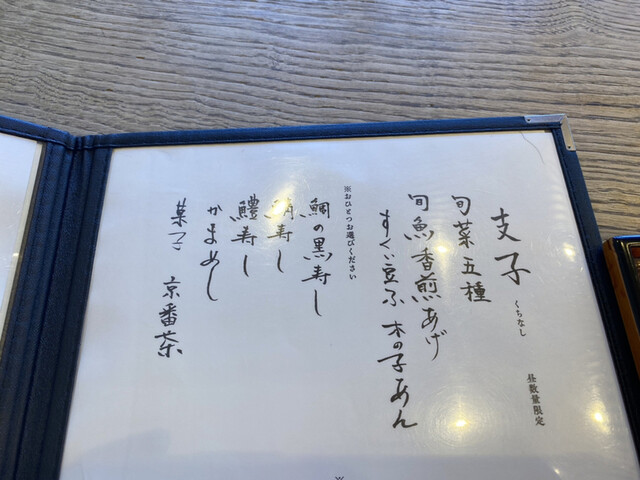 支子 くちなし 昼数量限定
旬菜五種
旬魚香煎あげ
すくい豆ふ 木の子あん
※おひとつお選びください
鯛の黒寿し
鯖寿し
鱧寿し
かまめし
菓子 京番茶
※